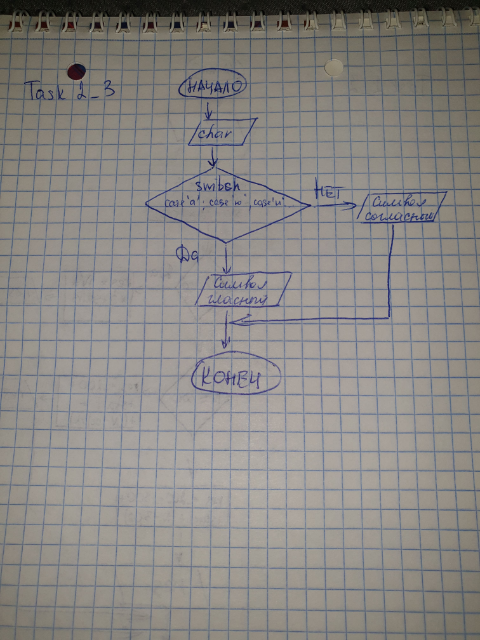 Task 2_3
НАЧАЛО
char
switch
case 'a'; case 'ю' case 'и'
НЕТ
Символ
согласный
Да
Символ
гласный
КОНЕЦ